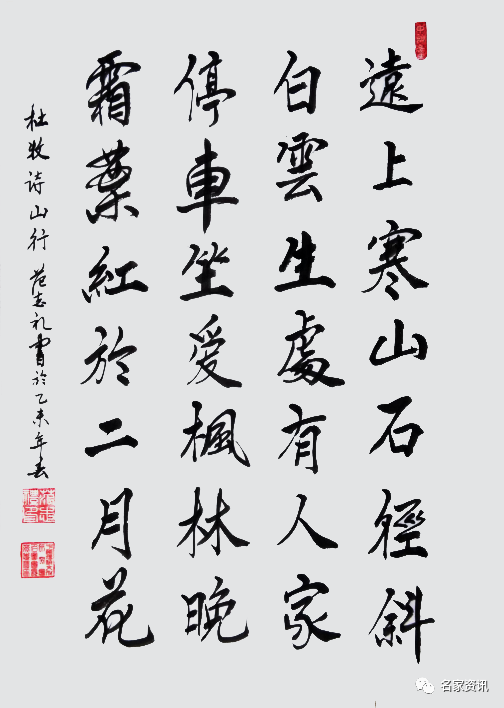 遠上寒山石徑斜
白雲生處有人家
停車坐愛楓林晚
霜葉紅於二月花
杜牧诗山行 范志礼書於乙未年春
名家资讯